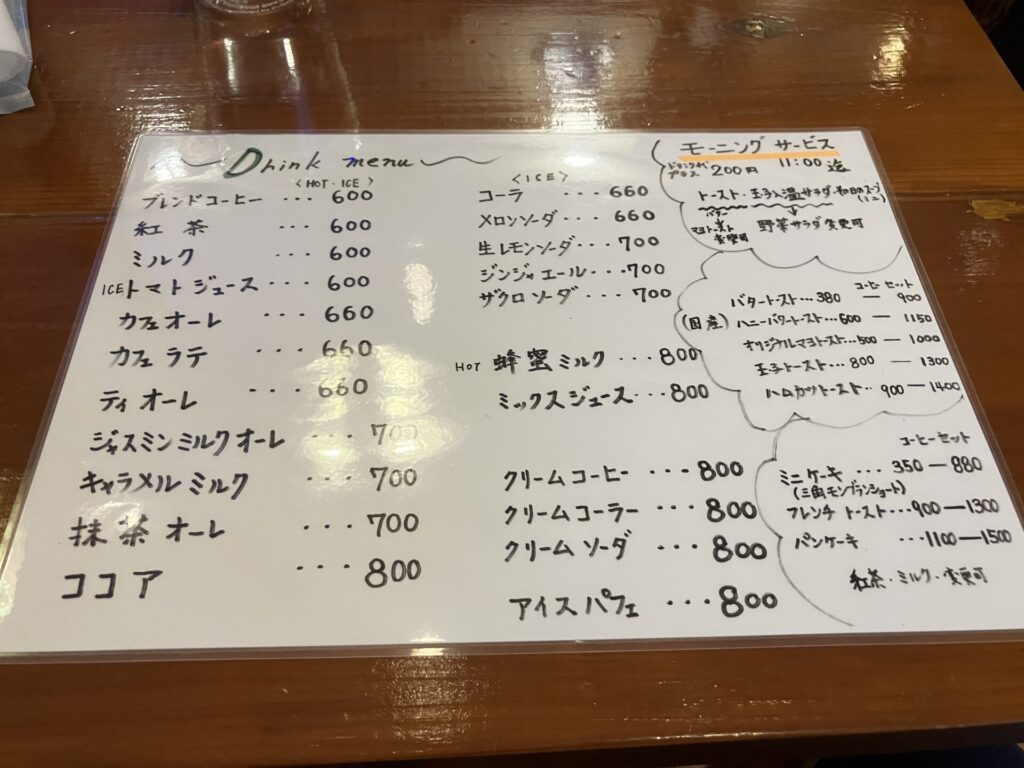 Drink menu
<HOT・ICE>
ブレンドコーヒー ... 600
紅茶 ... 600
ミルク ... 600
ICEトマトジュース ... 600
カフェオーレ ... 660
カフェラテ ... 660
ティオーレ ... 660
ジャスミンミルクオーレ ... 700
キャラメルミルク ... 700
抹茶オーレ ... 700
ココア ... 800
<ICE>
コーラ ... 660
メロンソーダ ... 660
生レモンソーダ ... 700
ジンジャエール ... 700
ザクロソーダ ... 700
HOT 蜂蜜ミルク ... 800
ミックスジュース ... 800
クリームコーヒー ... 800
クリームコーラー ... 800
クリームソーダ ... 800
アイスパフェ ... 800
モーニングサービス
ドリンク代プラス 200円 11:00迄
トースト・玉子入温サラダ・和日のスープ(ミニ)
バター
マヨトースト変更可
野菜サラダ変更可
コーヒーセット
バタートースト ... 380 — 900
(国産)ハニーバタートースト ... 600 — 1150
オリジナルマヨトースト ... 500 — 1000
玉子トースト ... 800 — 1300
ハムカツトースト ... 900 — 1400
コーヒーセット
ミニケーキ ... 350 — 880
(三角モンブランショート)
フレンチトースト ... 900 — 1300
パンケーキ ... 1100 — 1500
紅茶・ミルク・変更可